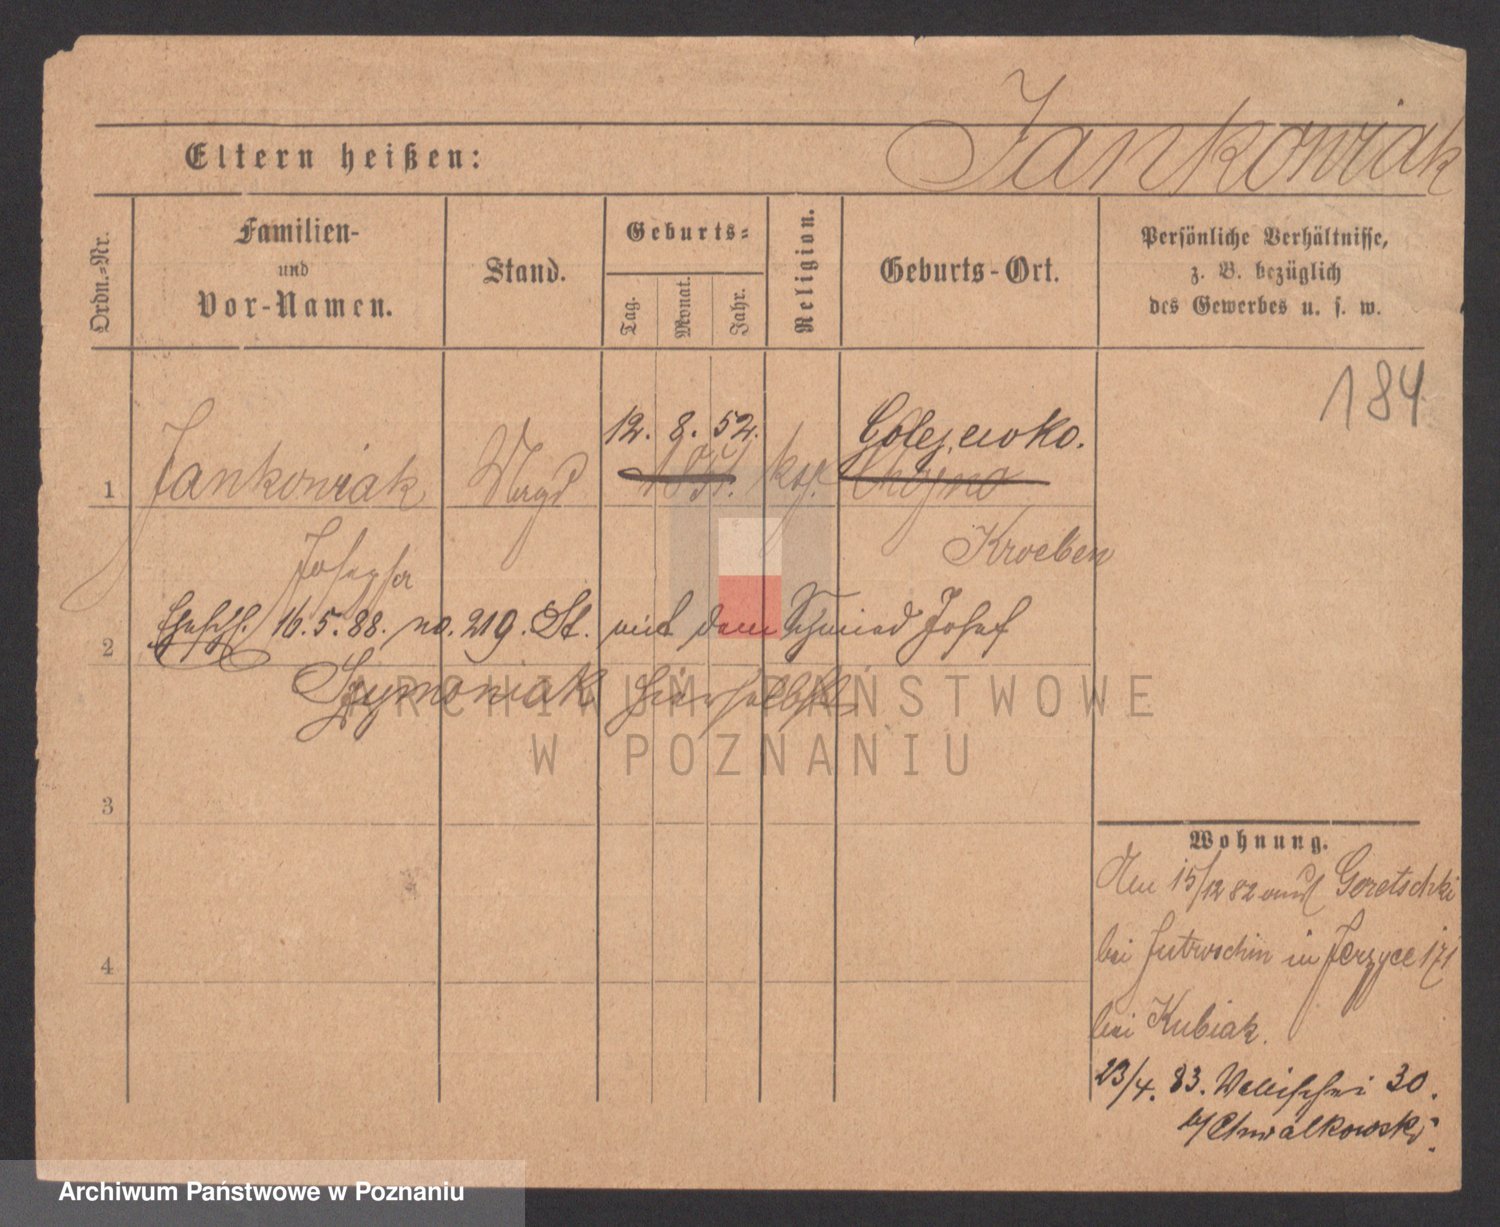 Jankowiak
Eltern heißen:
Ordn.-Nr.
Familien-
und
Vor-Namen.
Stand.
Geburts-
Tag.
Monat.
Jahr.
Religion.
Geburts-Ort.
Persönliche Verhältnisse,
z. B. bezüglich
des Gewerbes u. s. w.
184
12. 8. 52. Golejewko.
1 Jankowiak Magd kath. Chojno
Josepha Kroeben
2 Ehesch. 16.5.88. no. 219. St. mit dem Schmied Josef
Szymoniak hierselbst
ARCHIWUM PAŃSTWOWE
W POZNANIU
3
4
Wohnung.
den 15/12 82 aus Goretschki
bei Jutroschin in Jerzyce 171
bei Kubiak.
23/4. 83. Wallischei 30.
b/ Chwalkowski.
Archiwum Państwowe w Poznaniu